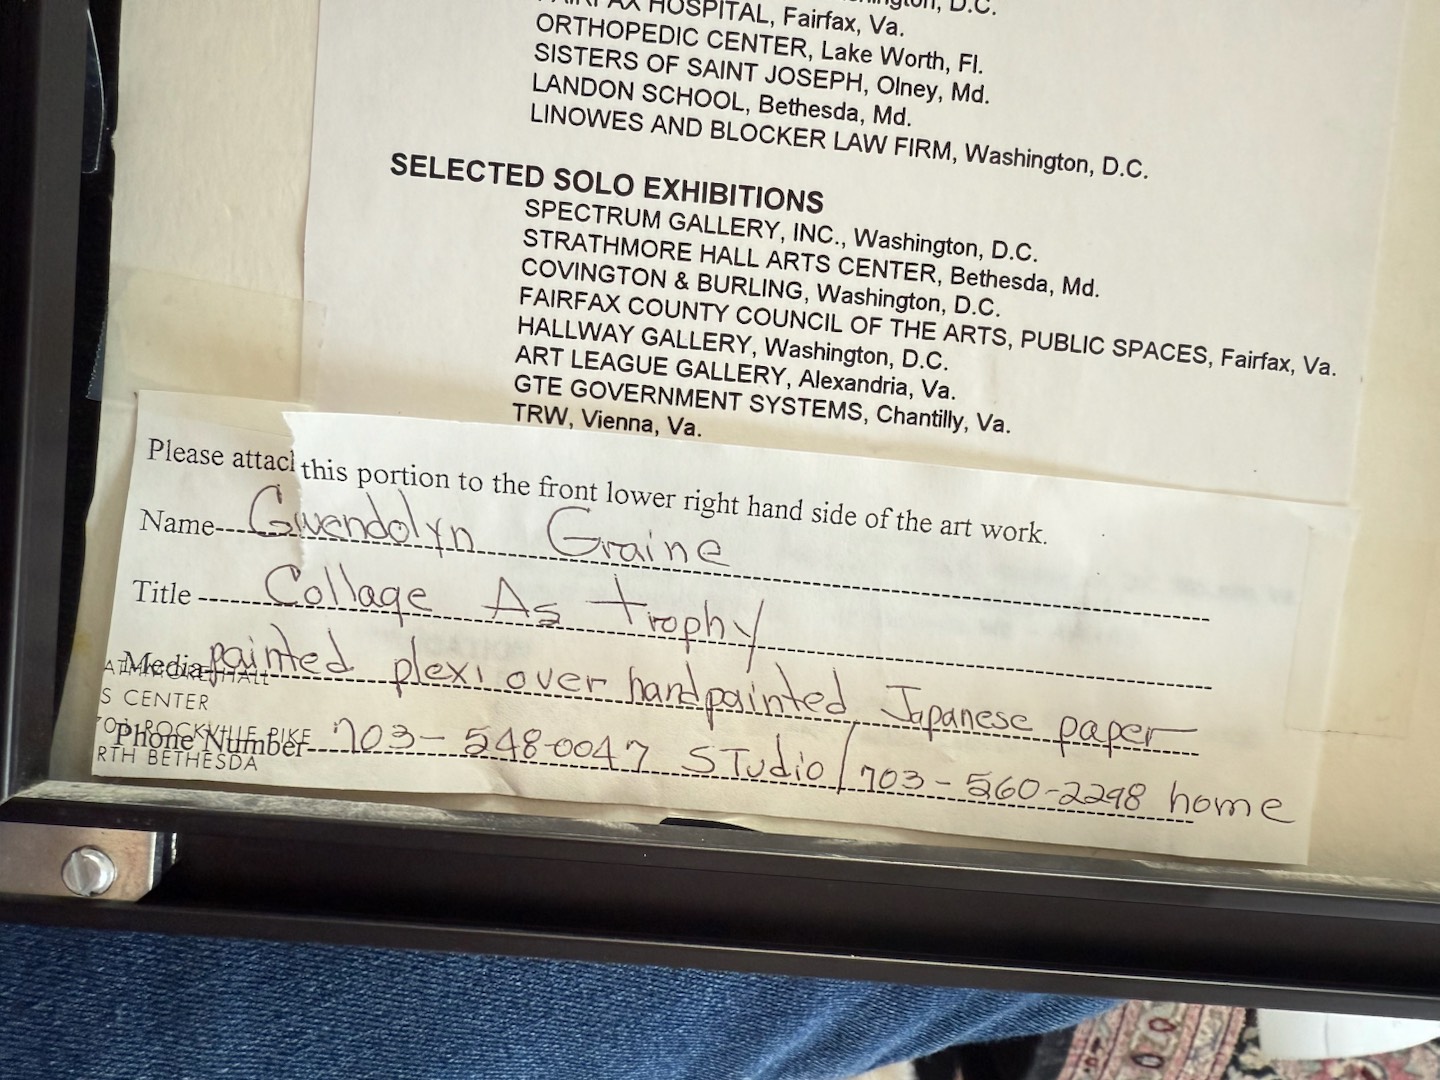 HOSPITAL, Fairfax, Va.
ORTHOPEDIC CENTER, Lake Worth, Fl.
SISTERS OF SAINT JOSEPH, Olney, Md.
LANDON SCHOOL, Bethesda, Md.
LINOWES AND BLOCKER LAW FIRM, Washington, D.C.
SELECTED SOLO EXHIBITIONS
SPECTRUM GALLERY, INC., Washington, D.C.
STRATHMORE HALL ARTS CENTER, Bethesda, Md.
COVINGTON & BURLING, Washington, D.C.
FAIRFAX COUNTY COUNCIL OF THE ARTS, PUBLIC SPACES, Fairfax, Va.
HALLWAY GALLERY, Washington, D.C.
ART LEAGUE GALLERY, Alexandria, Va.
GTE GOVERNMENT SYSTEMS, Chantilly, Va.
TRW, Vienna, Va.
Please attach this portion to the front lower right hand side of the art work.
Name Gwendolyn Graine
Title Collage As Trophy
Media painted plexi over handpainted Japanese paper
S CENTER
ROCKVILLE PIKE
Phone Number 703-548-0047 Studio/703-560-2298 home
RTH BETHESDA